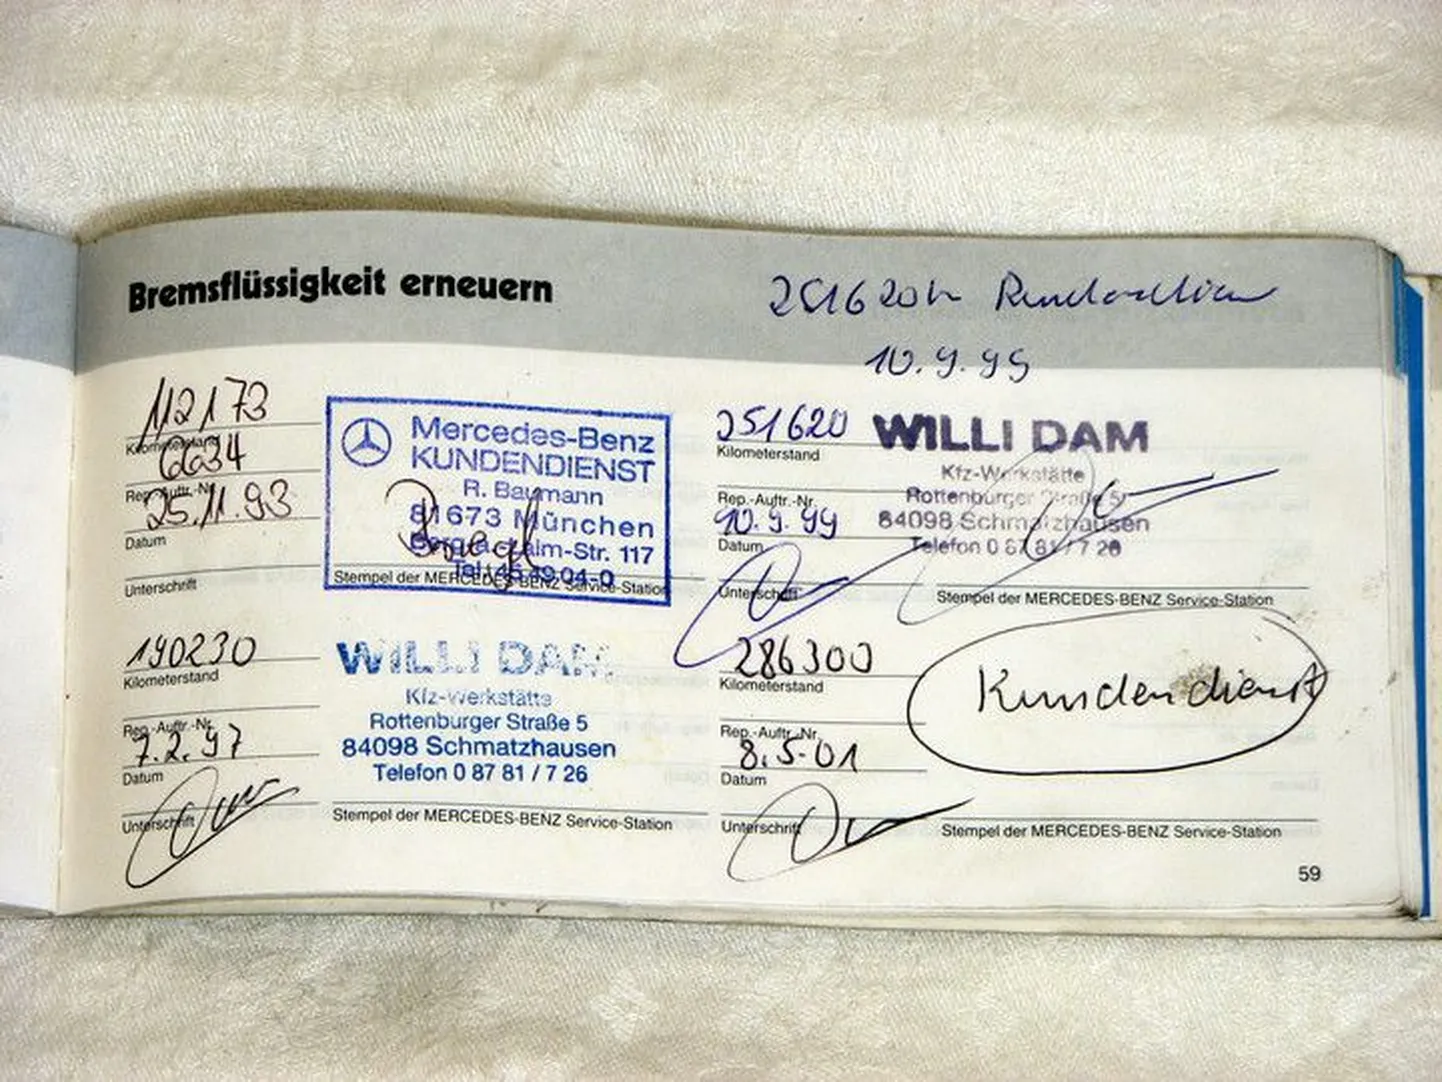 Bremsflüssigkeit erneuern
251620
10.9.99
112173
Kilometerstand
6634
Rep.-Auftr.-Nr.
25.11.93
Datum
Unterschrift
Mercedes-Benz
KUNDENDIENST
R. Baumann
81673 München
Str. 117
Tel. 45 49 04-0
Stempel der MERCEDES-BENZ Service-Station
251620
Kilometerstand
Rep.-Auftr.-Nr.
10.9.99
Datum
Unterschrift
WILLI DAM
Kfz-Werkstätte
Rottenburger Straße 5
84098 Schmatzhausen
Telefon 0 87 81 / 7 26
Stempel der MERCEDES-BENZ Service-Station
190230
Kilometerstand
Rep.-Auftr.-Nr.
7.2.97
Datum
Unterschrift
WILLI DAM
Kfz-Werkstätte
Rottenburger Straße 5
84098 Schmatzhausen
Telefon 0 87 81 / 7 26
Stempel der MERCEDES-BENZ Service-Station
286300
Kilometerstand
Rep.-Auftr.-Nr.
8.5.01
Datum
Unterschrift
Kundendienst
Stempel der MERCEDES-BENZ Service-Station
59